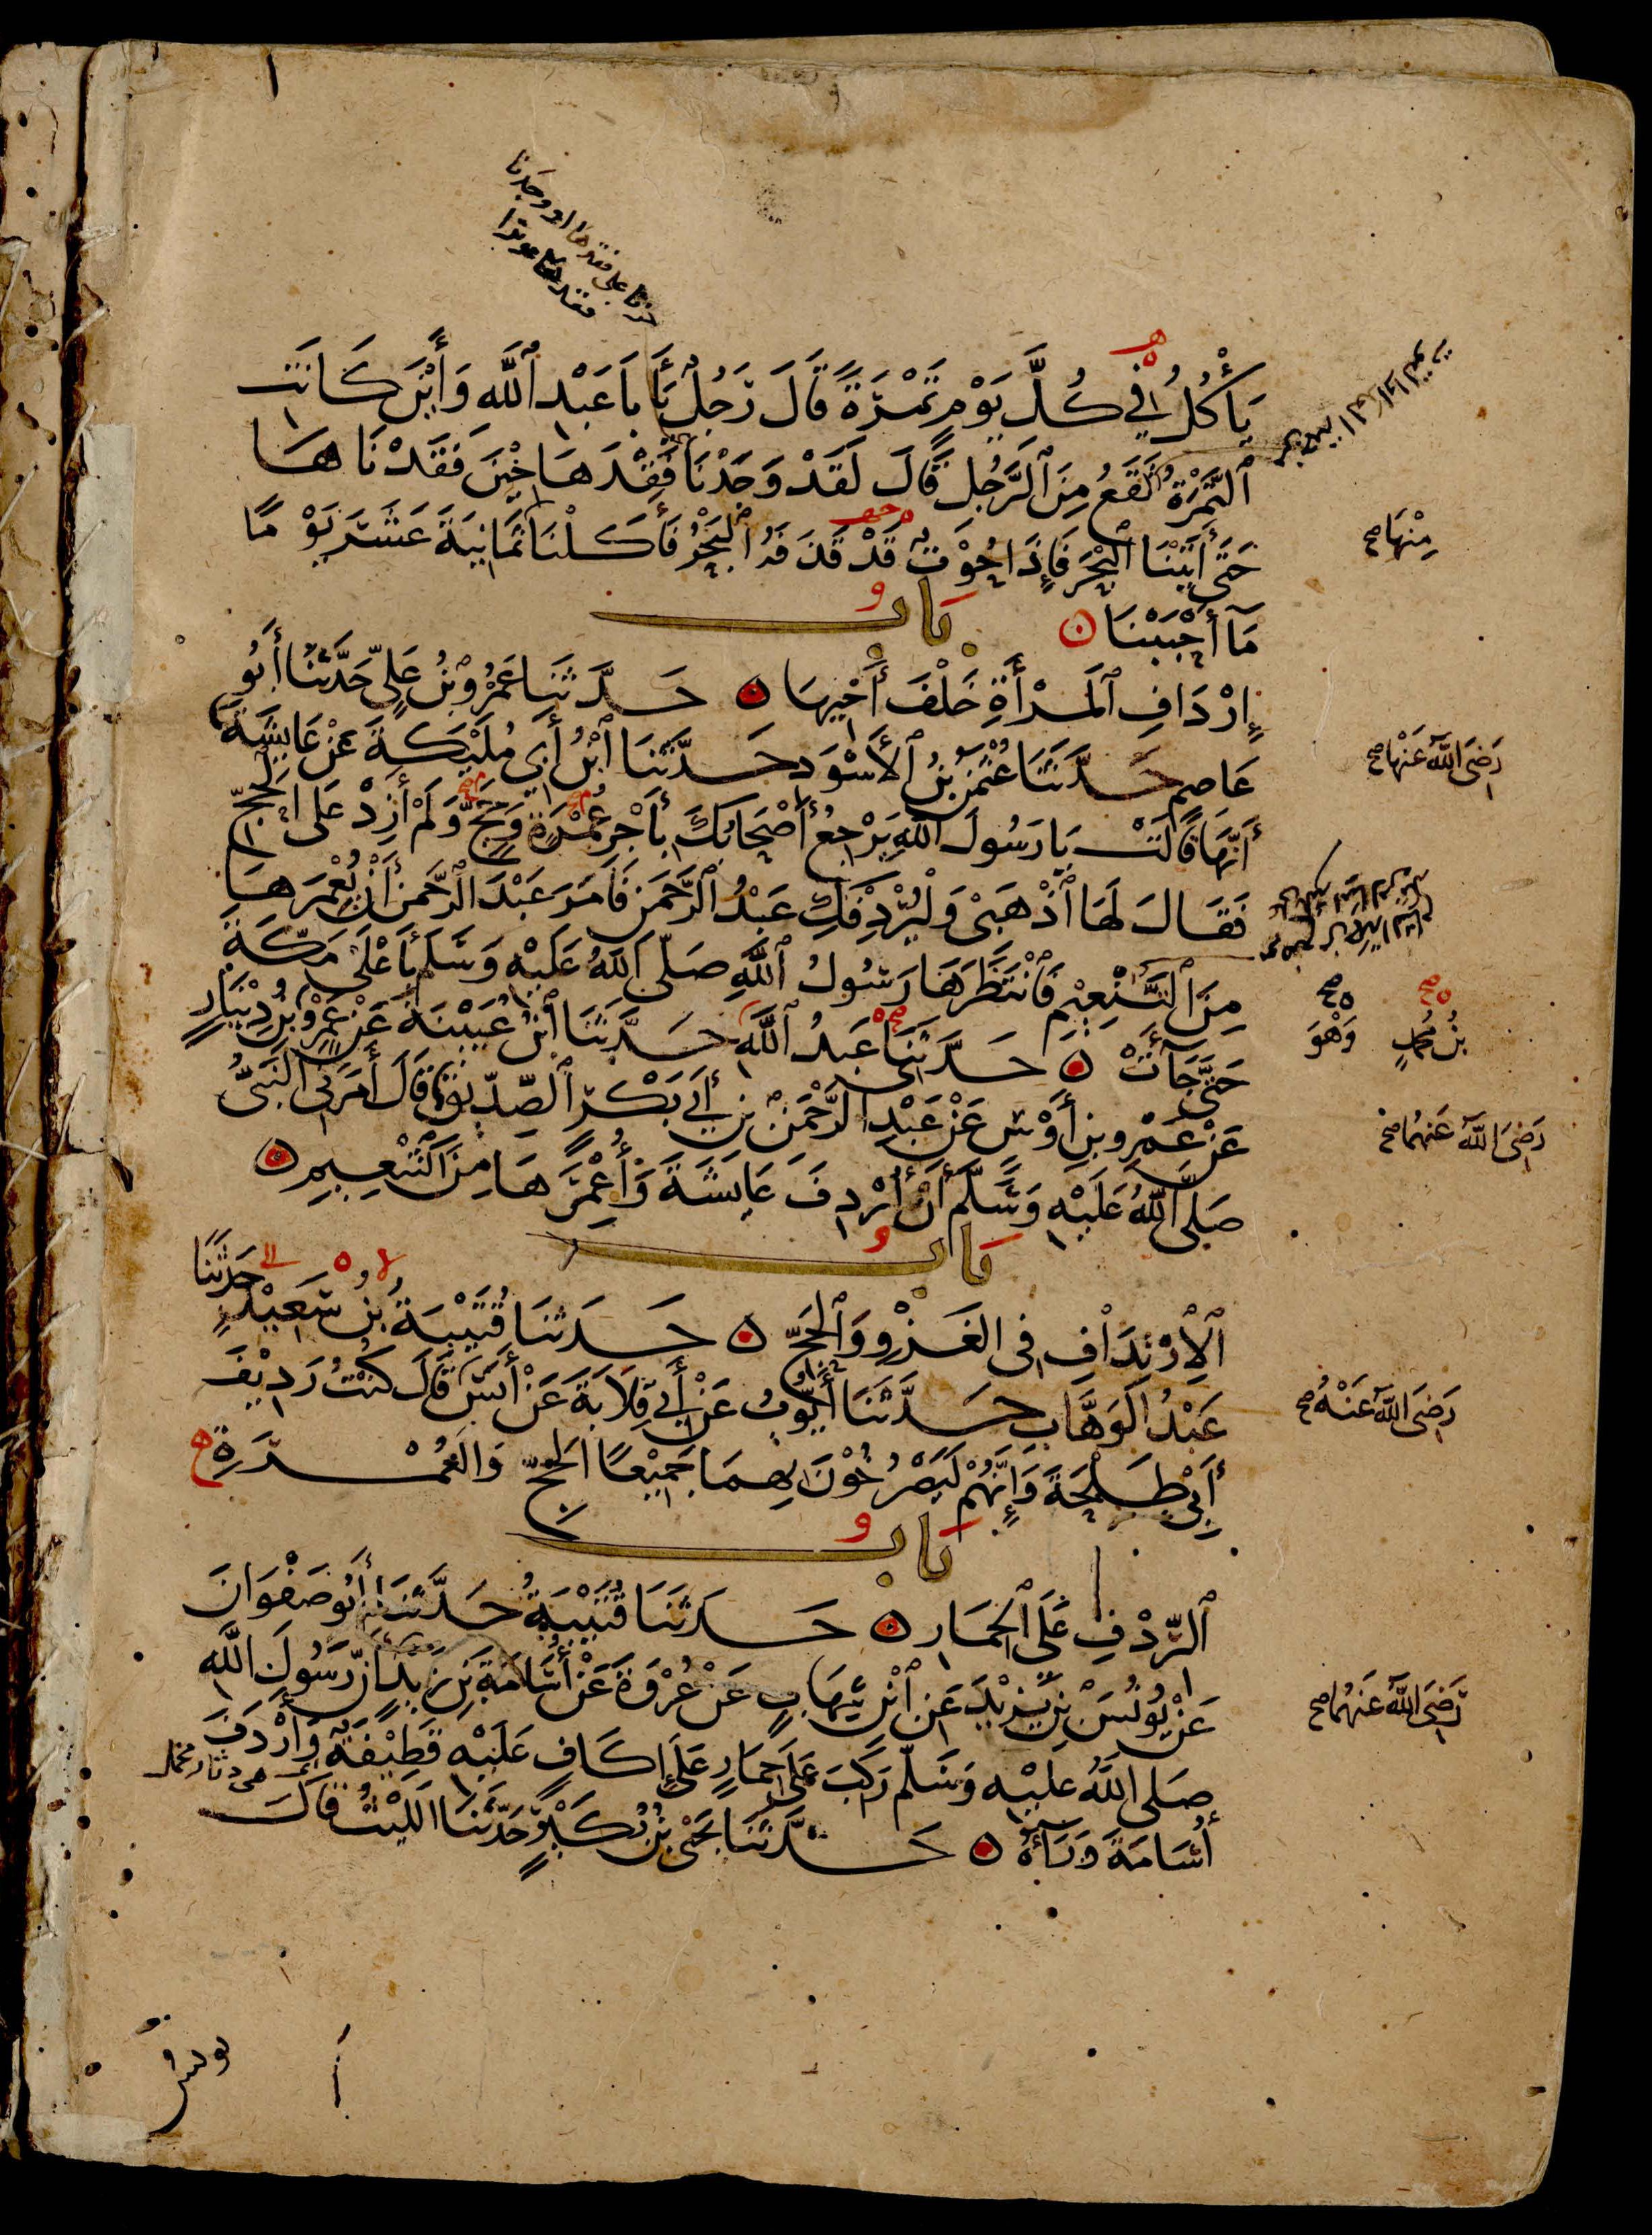 يَأْكُلُ فِي كُلِّ يَوْمٍ تَمْرَةً قَالَ رَجُلٌ يَا أَبَا عَبْدِ ٱللَّهِ وَأَيْنَ كَانَتِ
ٱلتَّمْرَةُ تَقَعُ مِنَ ٱلرَّجُلِ قَالَ لَقَدْ وَجَدْنَا فَقْدَهَا حِيْنَ فَقَدْنَاهَا
حَتَّى أَتَيْنَا ٱلْبَحْرَ فَإِذَا حُوْتٌ قَدْ قَذَفَهُ ٱلْبَحْرُ فَأَكَلْنَا ثَمَانِيَةَ عَشَرَ يَوْمًا
مِنْهَا صح
مَا أَحْبَبْنَا بَابُ
إِرْدَافِ ٱلْمَرْأَةِ خَلْفَ أَخِيهَا حَدَّثَنَا عَمْرُو بْنُ عَلِيٍّ حَدَّثَنَا أَبُو
عَاصِمٍ حَدَّثَنَا عُثْمٰنُ بْنُ ٱلْأَسْوَدِ حَدَّثَنَا ٱبْنُ أَبِي مُلَيْكَةَ عَنْ عَايِشَةَ
رَضِيَ اللَّهُ عَنْهَا صح
أَنَّهَا قَالَتْ يَا رَسُولَ اللَّهِ يَرْجِعُ أَصْحَابُكَ بِأَجْرِ عُمْرَةٍ وَحَجٍّ وَلَمْ أَزِدْ عَلَى الْحَجِّ
فَقَالَ لَهَا ٱذْهَبِيْ وَلْيُرْدِفْكِ عَبْدُ ٱلرَّحْمَنِ فَأَمَرَ عَبْدَ ٱلرَّحْمَنِ أَنْ يُعْمِرَهَا
مِنَ ٱلتَّنْعِيْمِ فَٱنْتَظَرَهَا رَسُولُ ٱللَّهِ صَلَّى اللَّهُ عَلَيْهِ وَسَلَّمَ بِأَعْلَى مَكَّةَ
حَتَّى جَاءَتْ حَدَّثَنِي عَبْدُ ٱللَّهِ حَدَّثَنَا ٱبْنُ عُيَيْنَةَ عَنْ عَمْرِو بْنِ دِيْنَارٍ
بْنُ مُحَمَّدٍ وَهْوَ
عَنْ عَمْرِو بْنِ أَوْسٍ عَنْ عَبْدِ الرَّحْمٰنِ بْنِ أَبِي بَكْرٍ ٱلصِّدِّيْقِ قَالَ أَمَرَنِي النَّبِيُّ
رَضِيَ اللَّهُ عَنْهُمَا صح
صَلَّى اللَّهُ عَلَيْهِ وَسَلَّمَ أَنْ أُرْدِفَ عَايِشَةَ وَأُعْمِرَهَا مِنَ ٱلتَّنْعِيمِ
بَابُ
ٱلْإِرْتِدَافِ فِي الْغَزْوِ وَٱلْحَجِّ حَدَّثَنَا قُتَيْبَةُ بْنُ سَعِيْدٍ حَدَّثَنَا
عَبْدُ الْوَهَّابِ حَدَّثَنَا أَيُّوبُ عَنْ أَبِي قِلَابَةَ عَنْ أَنَسٍ قَالَ كُنْتُ رَدِيْفَ
رَضِيَ اللَّهُ عَنْهُ صح
أَبِي طَلْحَةَ وَإِنَّهُمْ لَيَصْرُخُوْنَ بِهِمَا جَمِيْعًا الْحَجِّ وَالْعُمْرَةِ
بَابُ
ٱلرِّدْفِ عَلَى ٱلْحِمَارِ حَدَّثَنَا قُتَيْبَةُ حَدَّثَنَا أَبُو صَفْوَانَ
عَنْ يُونُسَ بْنِ يَزِيْدَ عَنِ ٱبْنِ شِهَابٍ عَنْ عُرْوَةَ عَنْ أُسَامَةَ بْنِ زَيْدٍ أَنَّ رَسُولَ اللَّهِ
رَضِيَ اللَّهُ عَنْهُمَا صح
صَلَّى اللَّهُ عَلَيْهِ وَسَلَّمَ رَكِبَ عَلَى حِمَارٍ عَلَى إِكَافٍ عَلَيْهِ قَطِيْفَةٌ وَأَرْدَفَ
هي دثار مخمل
أُسَامَةَ وَرَاءَهُ حَدَّثَنَا يَحْيَى بْنُ بُكَيْرٍ حَدَّثَنَا اللَّيْثُ قَالَ
يونس